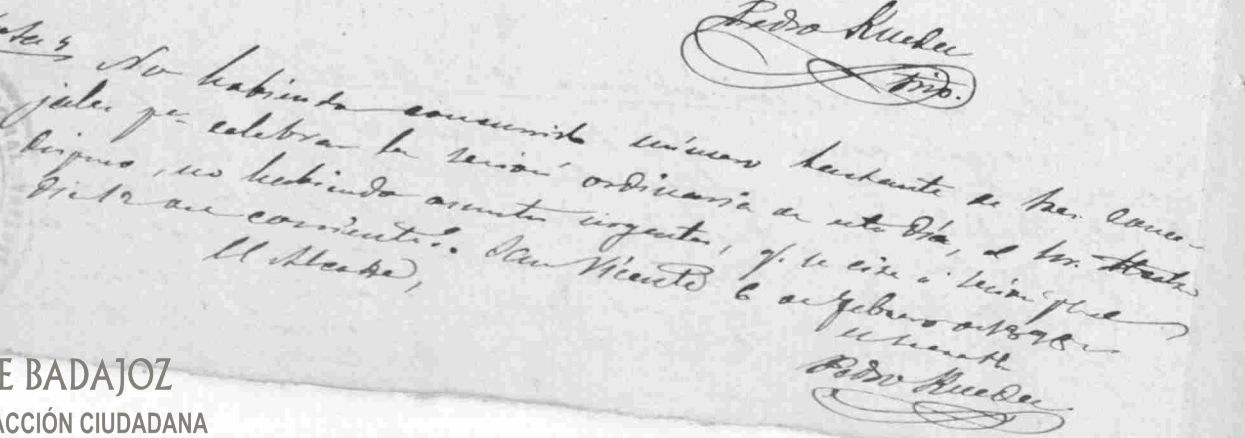 Pedro Rueda
Srio.
Nota No habiendo concurrido número bastante de Sres. conce-
jales pa. celebrar la sesión ordinaria de este día, el Sr. Alcalde
dispuso, no habiendo asuntos urgentes, q. se cite a sesión pa. el
día 12 del corriente. San Vicente 6 de febrero de 1898
El Alcalde,
El Secreto.
Pedro Rueda
E BADAJOZ
ACCIÓN CIUDADANA